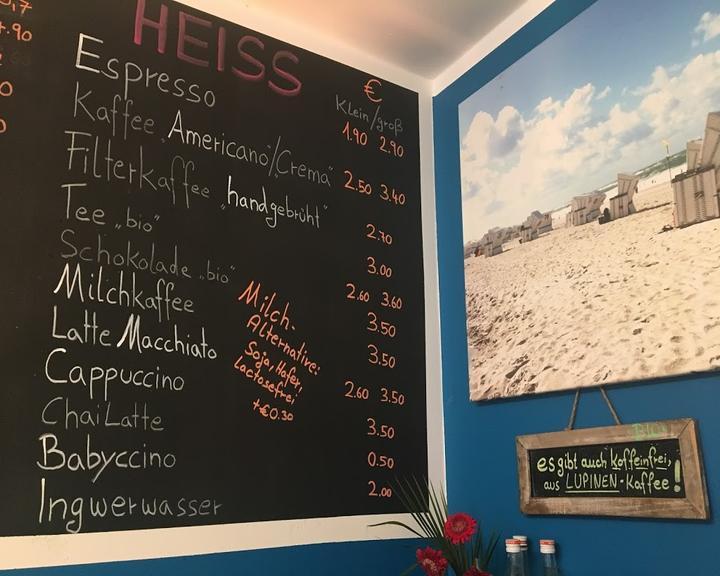 7
4.90
HEISS
€
Klein/groß
Espresso 1.90 2.90
Kaffee „Americano/Crema" 2.50 3.40
Filterkaffee „handgebrüht" 2.70
Tee „bio" 3.00
Schokolade „bio" 2.60 3.60
Milchkaffee 3.50
Latte Macchiato 3.50
Cappuccino 2.60 3.50
Chai Latte 3.50
Babyccino 0.50
Ingwerwasser 2.00
Milch-
Alternative:
Soja, Hafer,
Lactosefrei
+€0.30
BIO
es gibt auch koffeinfrei,
aus LUPINEN-Kaffee!